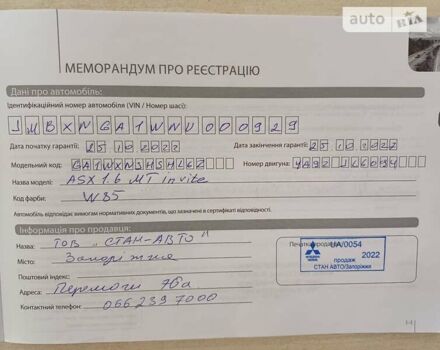 auto RIA
МЕМОРАНДУМ ПРО РЕЄСТРАЦІЮ
Дані про автомобіль:
Ідентифікаційний номер автомобіля (VIN / Номер шасі):
JMBXNGA1WNU000929
Дата початку гарантії: 25 10 2022 Дата закінчення гарантії: 25 10 2027
Модельний код: GA1WXNSHSHL6Z Номер двигуна:
Назва моделі: ASX 1.6 MT Invite
Код фарби: W85
Автомобіль відповідає вимогам нормативних документів, що зазначені в сертифікаті відповідності.
Інформація про продавця:
Назва: ТОВ „СТАН-АВТО"
Місто: Запоріжжя
Поштовий індекс:
Адреса: Перемоги 76а
Контактний телефон: 066 239 7000
Печатка
UA/0054
2022
продаж
СТАН АВТО/Запоріжжя